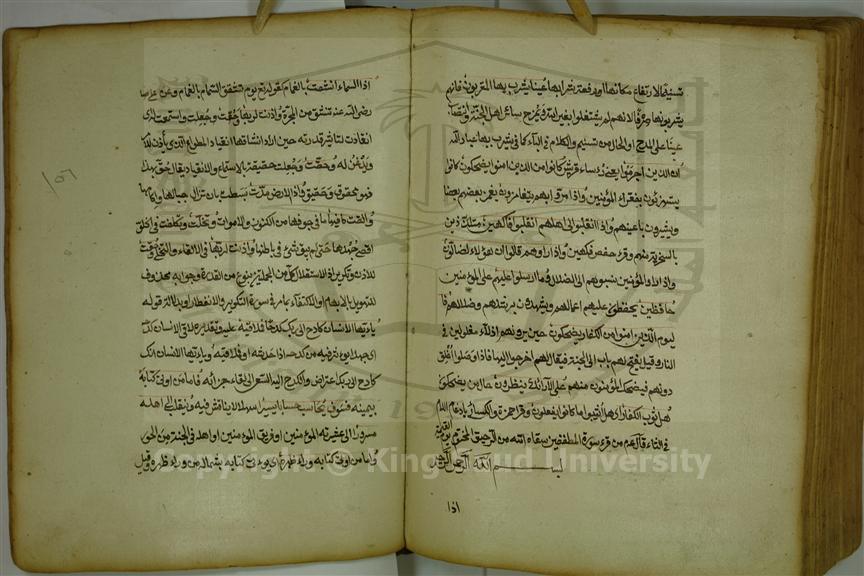 تسنيم لارتفاع مكانها او رفعة شرابها عينا يشرب بها المقربون فانهم
يشربونها صرفا لانهم لم يشتغلوا بغير الله ويمزج لسائر اهل الجنة وانتصاب
عينا على المدح او الحال من تسنيم والكلام في الباء كما في يشرب بها عباد الله
ان الذين اجرموا يعنى رؤساء قريش كانوا من الذين امنوا يضحكون كانوا
يستهزئون بفقراء المؤمنين واذا مروا بهم يتغامزون يغمز بعضهم بعضا
ويشيرون باعينهم واذا انقلبوا الى اهلهم انقلبوا فاكهين متلذذين
بالسخرية منهم وقرء حفص فكهين واذا راوهم قالوا ان هؤلاء لضالون
واذا راوا المؤمنين نسبوهم الى الضلال وما ارسلوا عليهم على المؤمنين
حافظين يحفظون عليهم اعمالهم ويشهدون برشدهم وضلالهم فا
ليوم الذين امنوا من الكفار يضحكون حين يرونهم اذلاء مغلولين في
النار وقيل يفتح لهم باب الى الجنة فيقال لهم اخرجوا اليها فاذا وصلوا اغلق
دونهم فيضحك المؤمنون منهم على الارائك ينظرون حال من يضحكون
هل ثوب الكفار اى هل اثيبوا ما كانوا يفعلون وقرا حمزة والكسائى بادغام اللام
في الثاء قال عم من قرء سورة المطففين سقاه الله من الرحيق المختوم يوم القيمة
بسم الله الرحمن الرحيم
اذا
اذا السماء انشقت بالغمام كقوله تع يوم تشقق السماء بالغمام وعن على
رضى الله عنه تنشق من المجرة واذنت لربها وحقت وجعلت واستمعت له اى
انقادت لتاثير قدرته حين اراد انشقاقها انقياد المطواع الذى يأذن للامر
ويذعن له وحقت وجعلت حقيقة بالاستماع والانقياد يقال حق بكذا
فهو محقوق وحقيق واذا الارض مدت بسطت بان تزال جبالها واكامها
والقت ما فيها ما فى جوفها من الكنوز والاموات وتخلت وتكلفت فى الخلو
اقصى جهدها حتى لم يبق شئ فى باطنها واذنت لربها فى الالقاء والتخلى وحقت
للاذن وتكرير اذا لاستقلال كل من الجملتين بنوع من القدرة وجوابه محذوف
للتهويل بالابهام او الاكتفاء بما مر فى سورة التكوير والانفطار او لدلالة قوله
يا ايها الانسان انك كادح الى ربك كدحا فملاقيه عليه وتقديره لاقى الانسان كدحه
اى جهدا يؤثر فيه من كدحه اذا خدشه او فملاقيه ويا ايها الانسان انك
كادح الى ربك اعتراض والكدح اليه السعى الى لقاء جزائه فاما من اوتى كتابه
بيمينه فسوف يحاسب حسابا يسيرا سهلا لا يناقش فيه وينقلب الى اهله
مسرورا الى عشيرته المؤمنين او فريق المؤمنين او اهله فى الجنة من الحور
واما من اوتى كتابه وراء ظهره اى يؤتى كتابه بشماله من وراء ظهره وقيل
Copyright © King Saud University